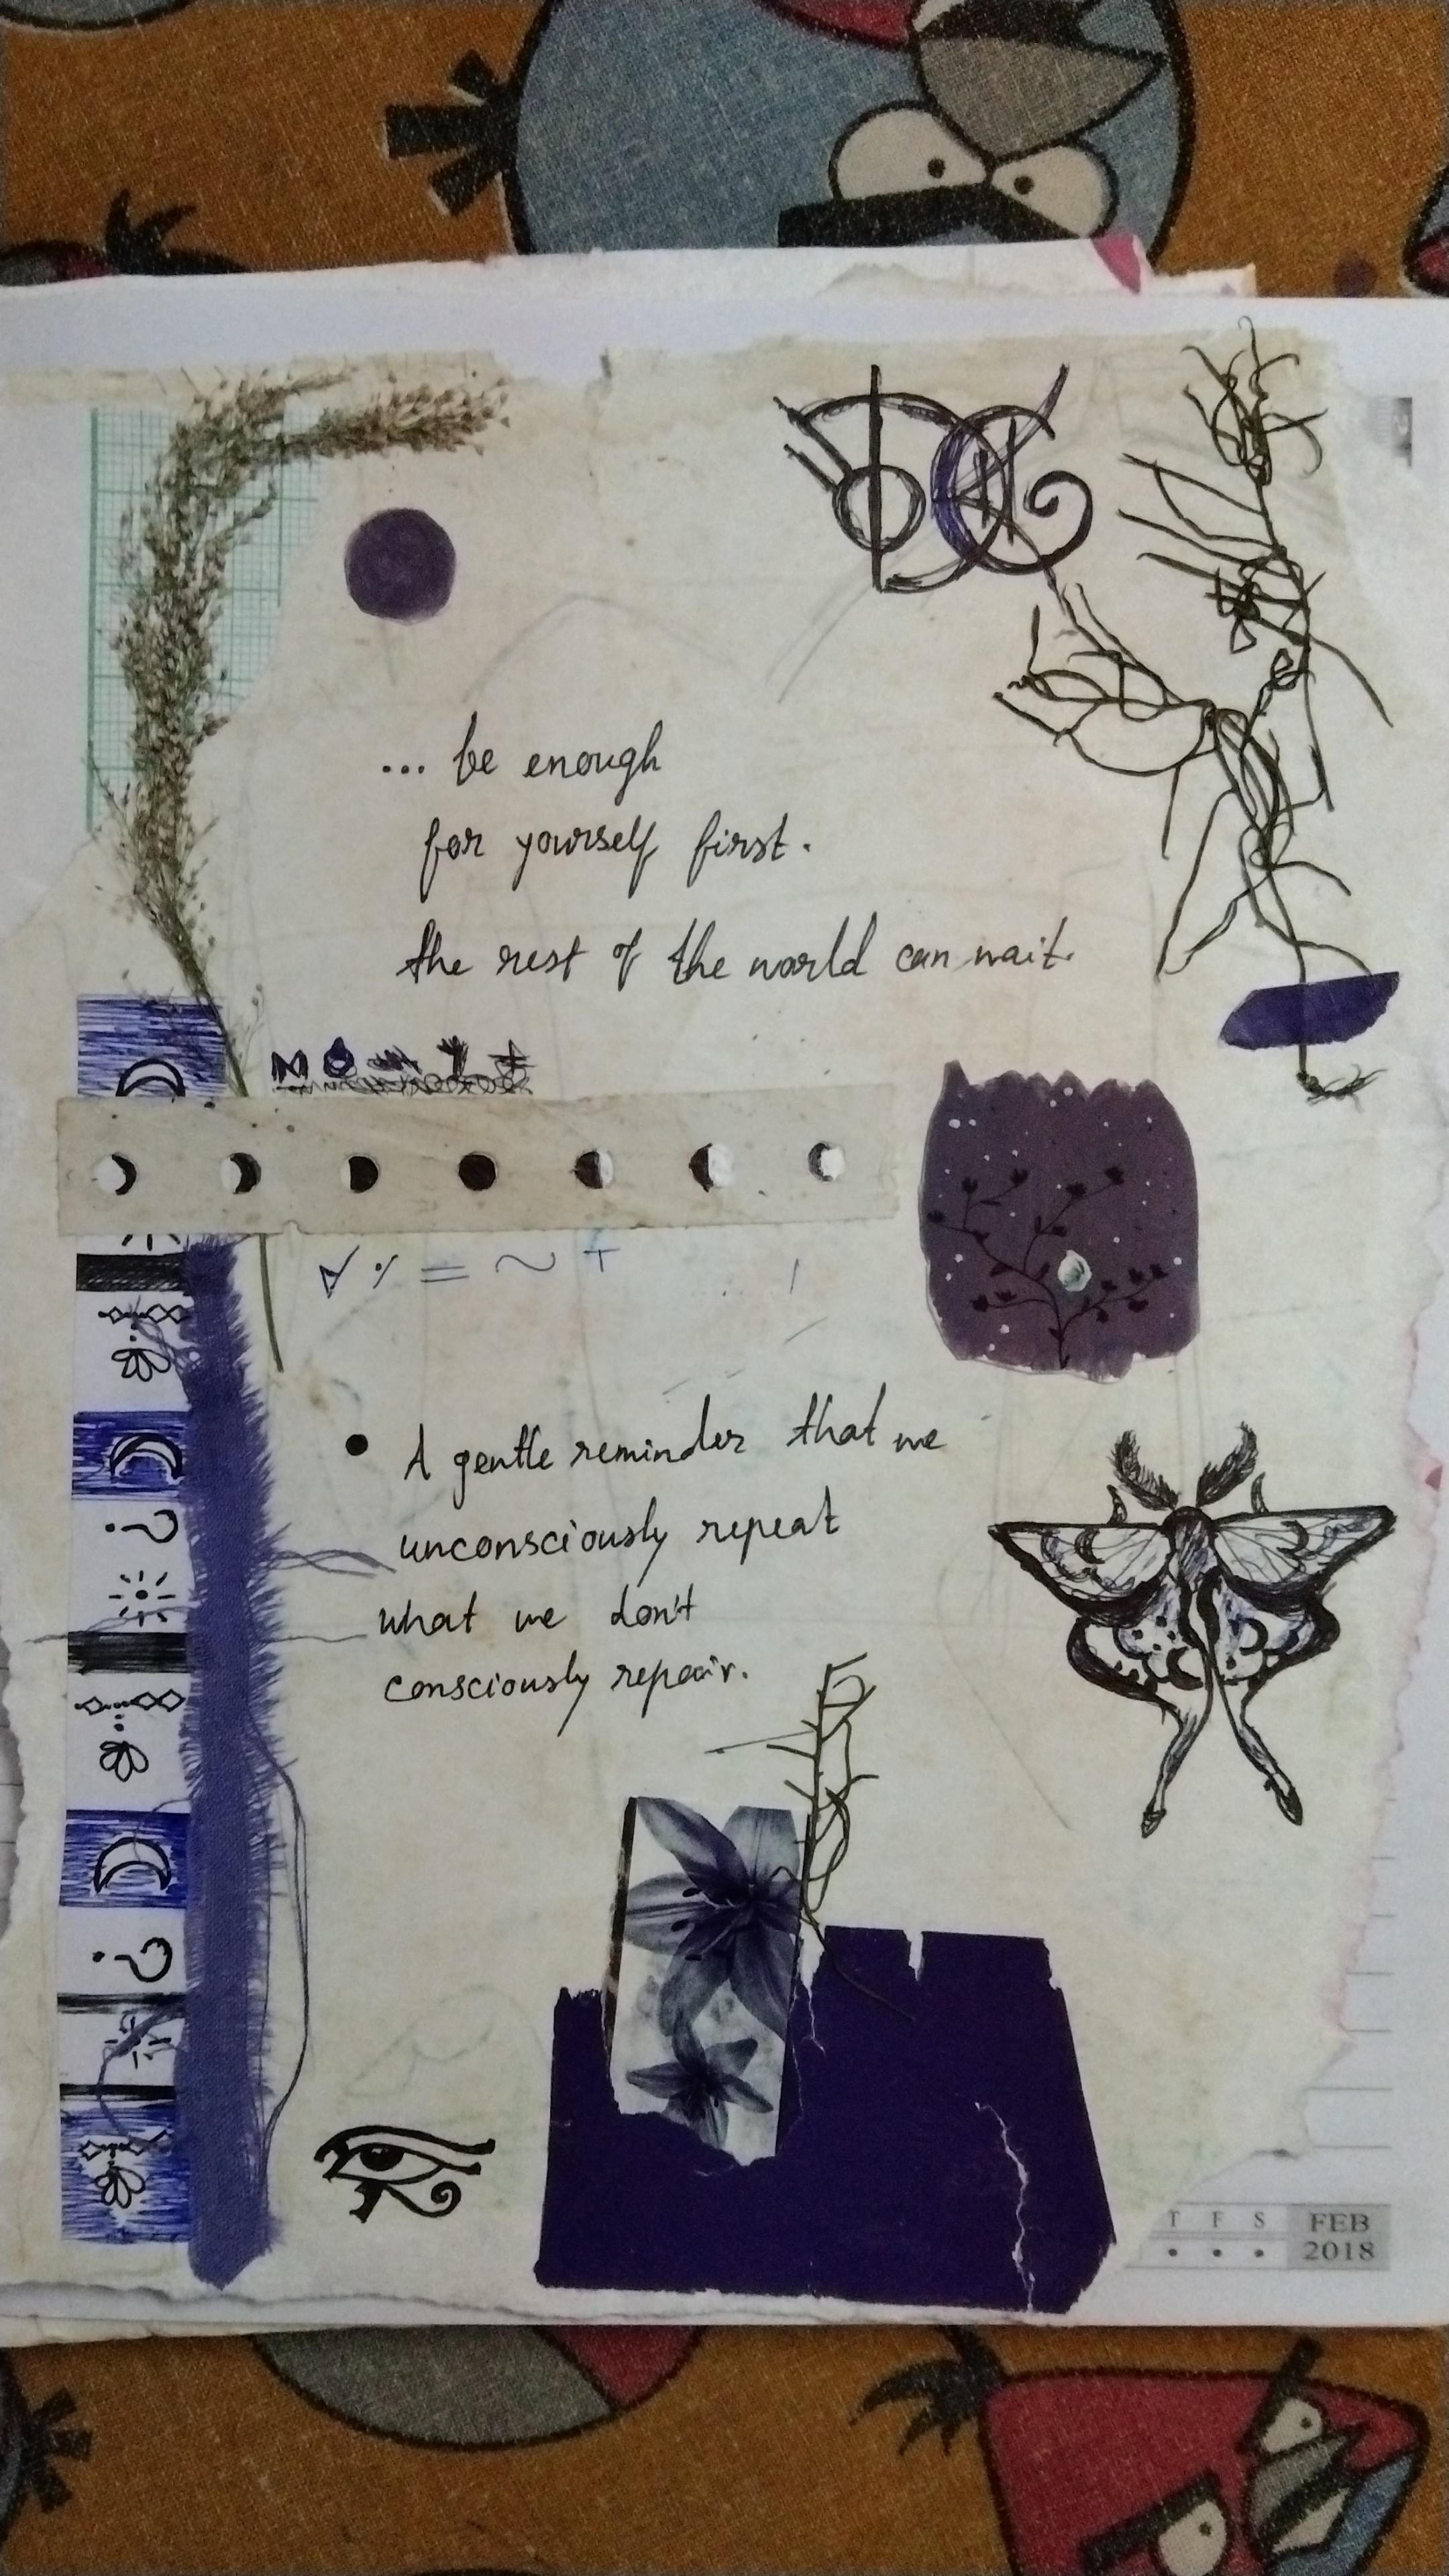 ... be enough
for yourself first.
the rest of the world can wait.
• A gentle reminder that we
unconsciously repeat
what we don't
consciously repair.
T F S FEB
2018